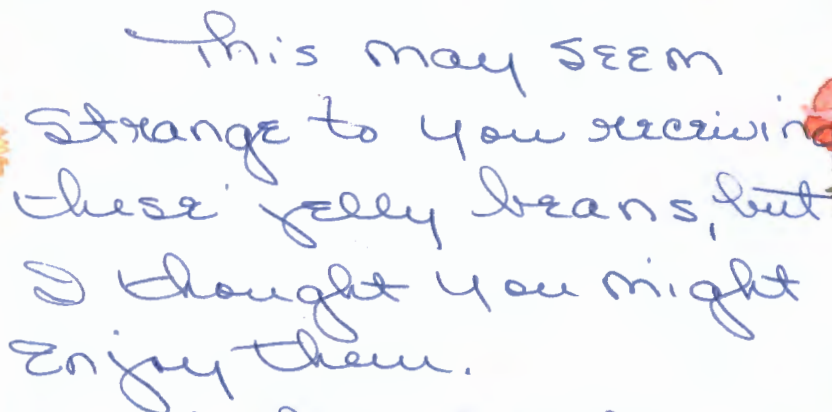 This may seem
strange to you receiving
these jelly beans, but
I thought you might
enjoy them.